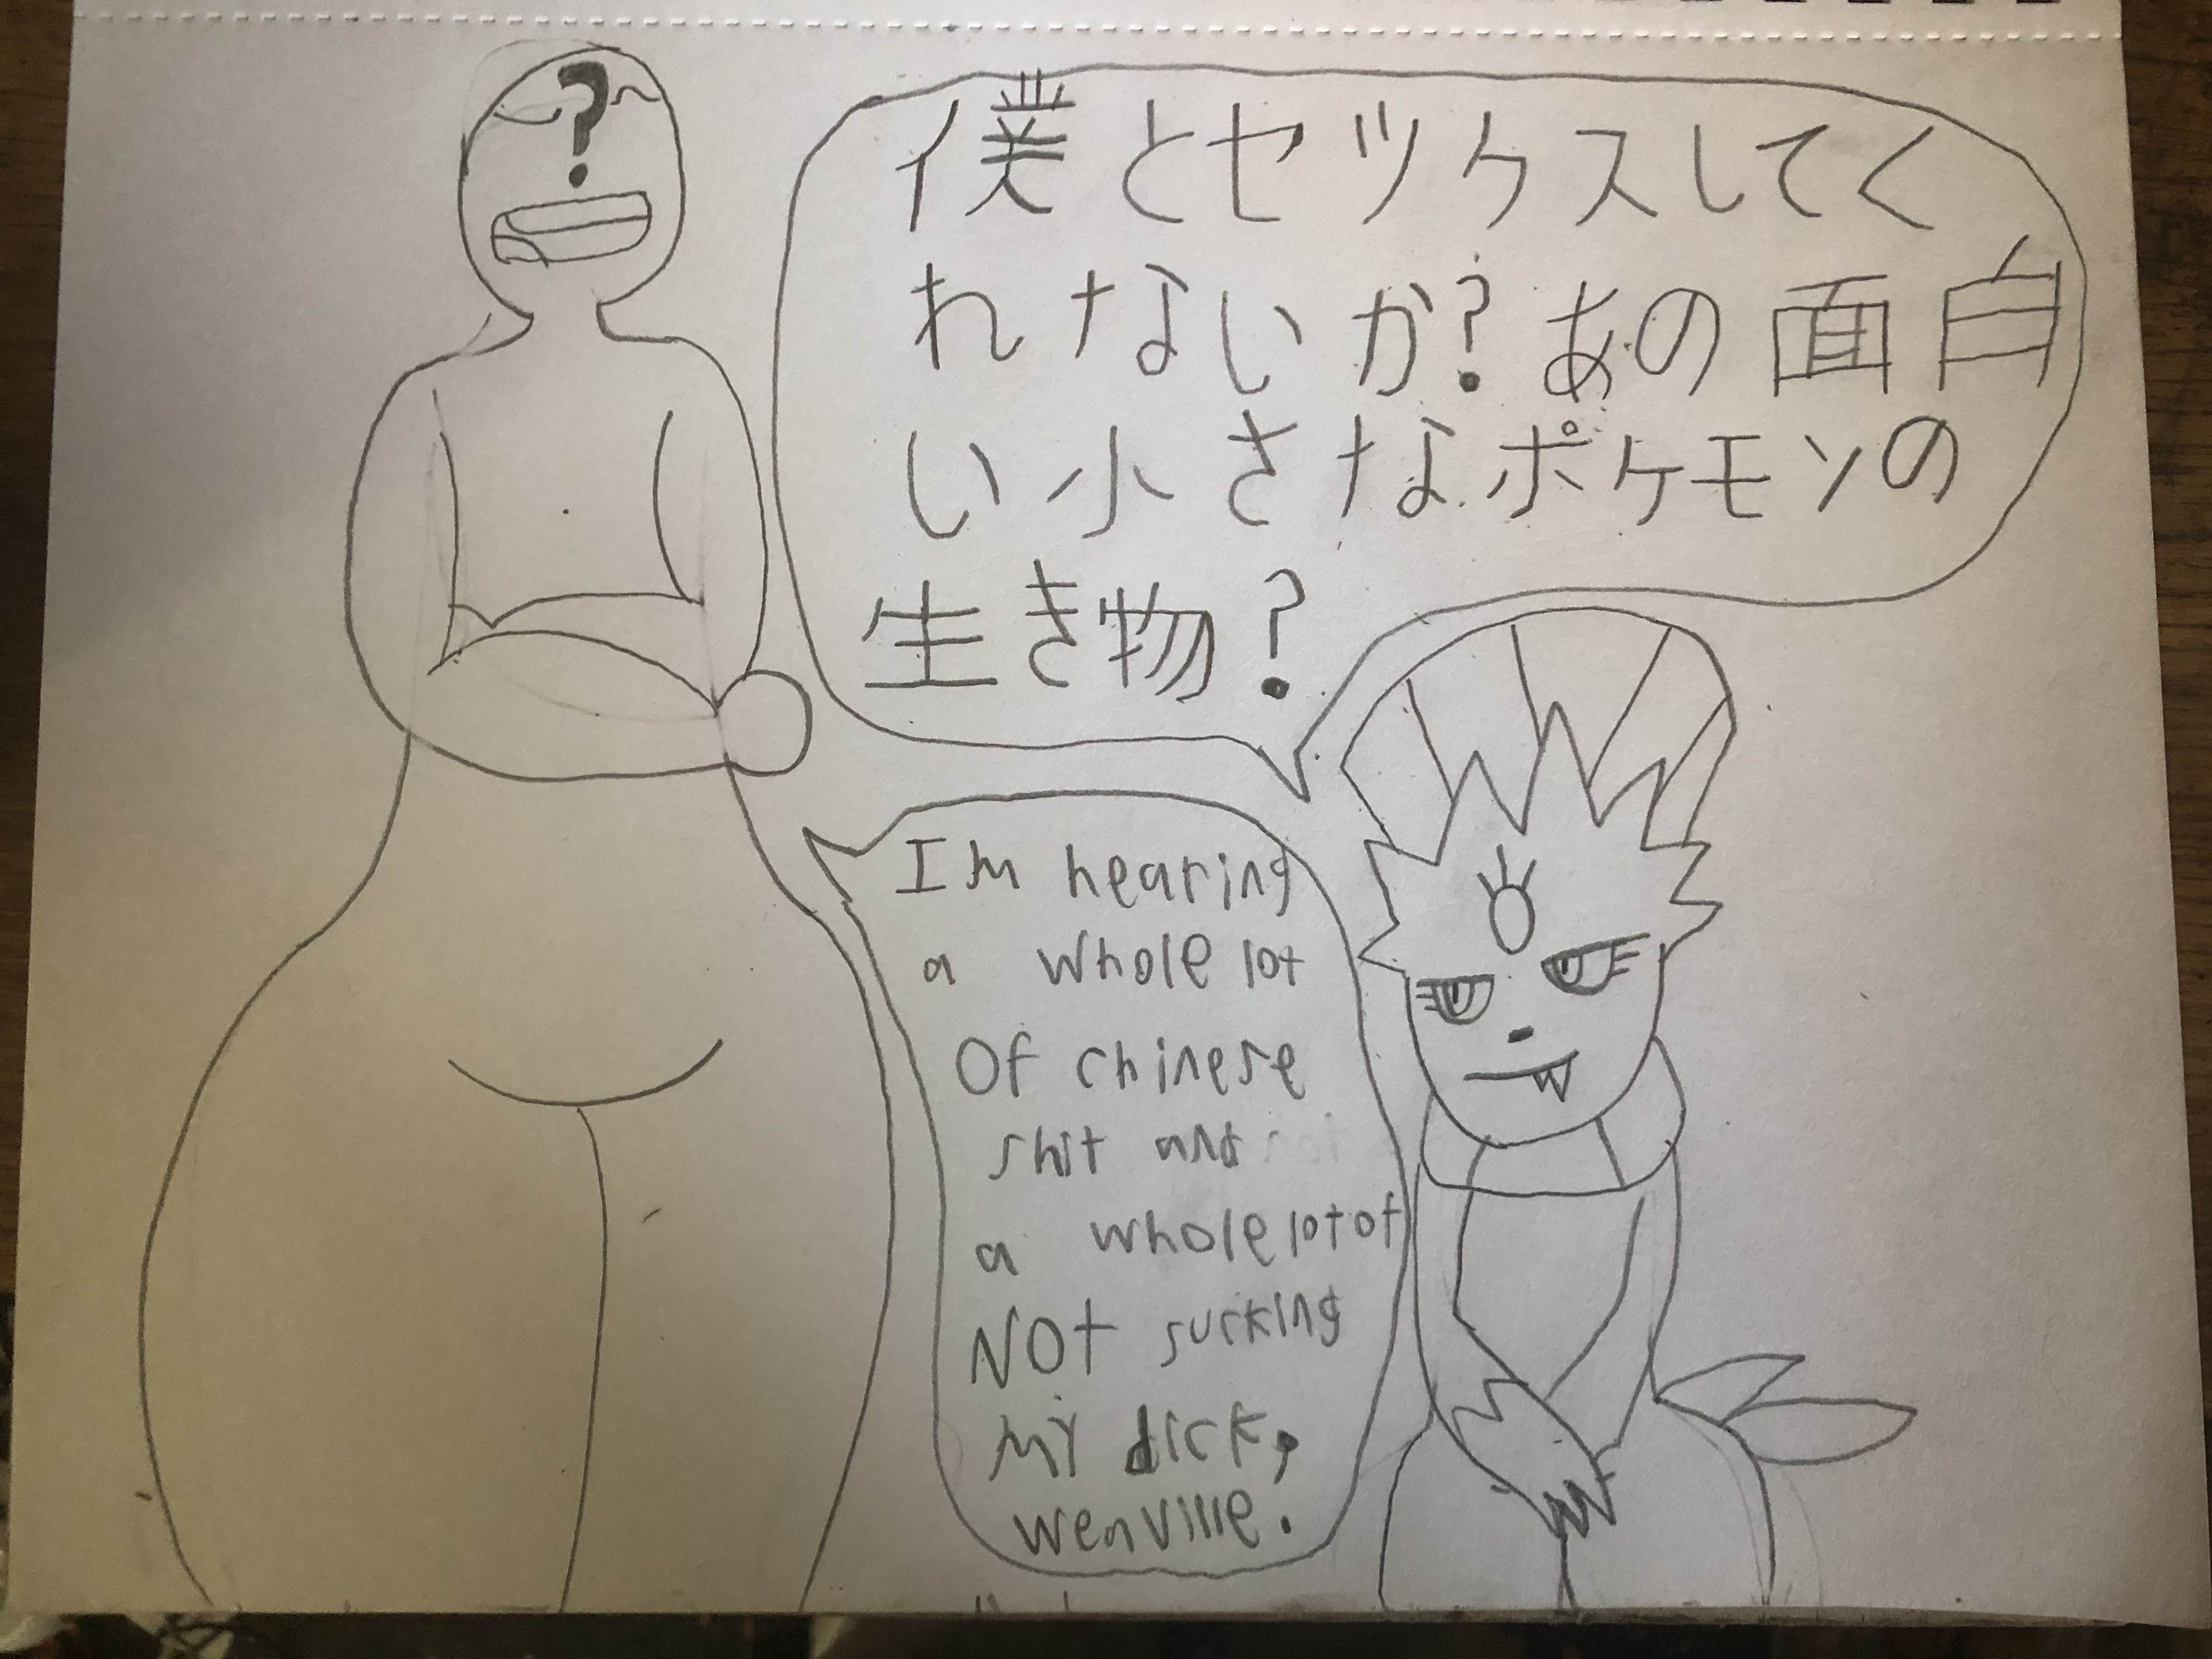 僕とセックスしてく
れないか?あの面白
い小さなポケモンの
生き物?
Im hearing
a whole lot
Of chinese
shit and
a whole lot of
NOt sucking
my dick,
wenville.
?